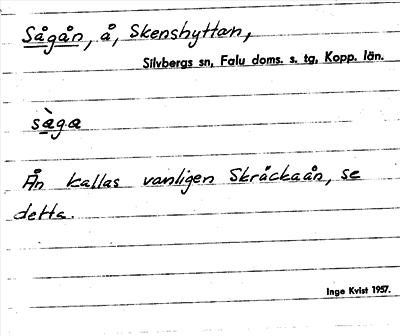 Sågån, å, Skenshyttan,
Silvbergs sn, Falu doms. s. tg, Kopp. län.
sæ̀ga
Ån kallas vanligen Skråckaån, se
detta.
Inge Kvist 1957.